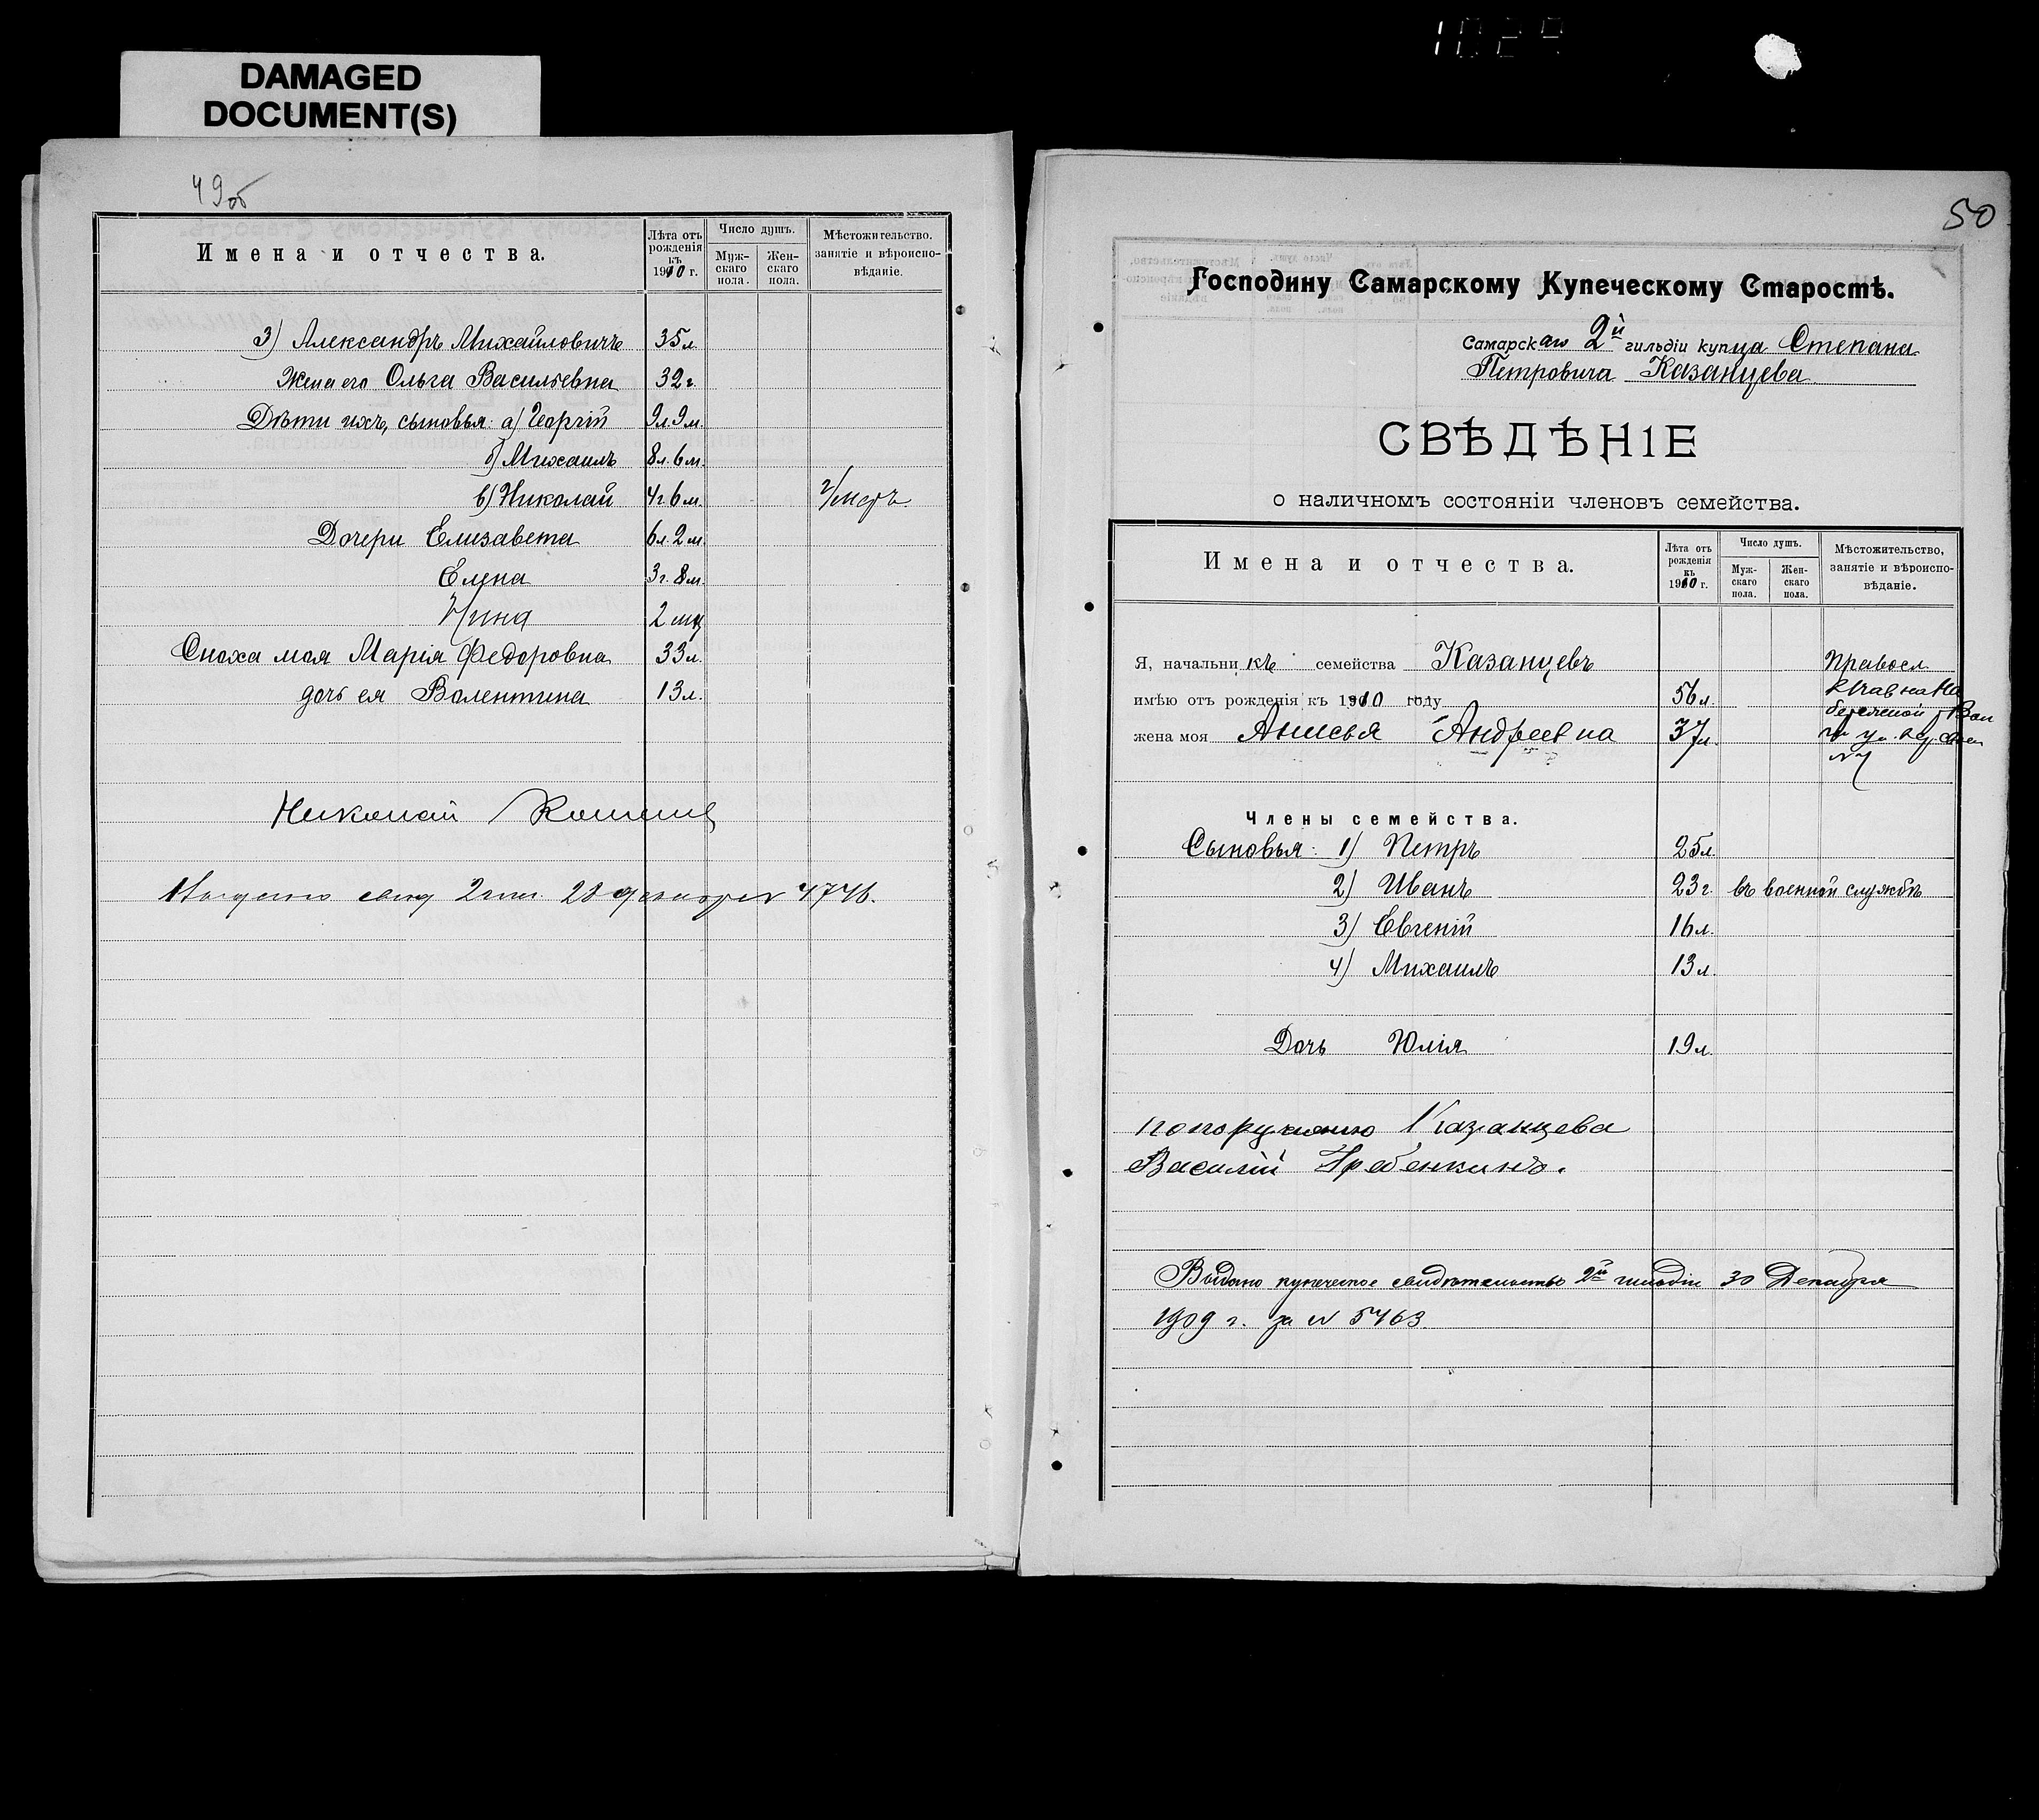 1029
DAMAGED
DOCUMENT(S)
49об
Имена и отчества.
Лѣта отъ рожденія къ 1910 г.
Число душъ.
Муж-скаго пола.
Жен-скаго пола.
Мѣстожительство. занятіе и вѣроиспо-вѣданіе.
3) Александръ Михайловичъ 35 л.
Жена его Ольга Васильевна 32 г.
Дѣти ихъ, сыновья: а) Георгій 9 л. 9 м.
б) Михаилъ 8 л. 6 м.
в) Николай 4 г. 6 м. Умеръ.
Дочери Елизавета 6 л. 2 м.
Елена 3 г. 8 м.
Нина 2 мц
Сноха моя Марія Федоровна 33 л.
дочь ея Валентина 13 л.
Николай
2 28 декабря 4746.
50
Господину Самарскому Купеческому Старостѣ.
Самарскаго 2й гильдіи купца Степана
Петровича Казанцева
СВѢДѢНІЕ
о наличномъ состояніи членовъ семейства.
Имена и отчества.
Лѣта отъ рожденія къ 1910 г.
Число душъ.
Муж-скаго пола.
Жен-скаго пола.
Мѣстожительство, занятіе и вѣроиспо-вѣданіе.
Я, начальникъ семейства Казанцевъ Правосл.
имѣю отъ рожденія къ 1910 году 56 л.
жена моя Анисья Андреевна 37 л.
Члены семейства.
Сыновья: 1) Петръ 25 л.
2) Иванъ 23 г. въ военной службѣ
3) Евгеній 16 л.
4) Михаилъ 13 л.
Дочь Юлія 19 л.
Казанцева
Василій Гребенкинъ.
Выдано купеческое свидѣтельство 2й гильдіи 30 Декабря
1909 г. за № 5463